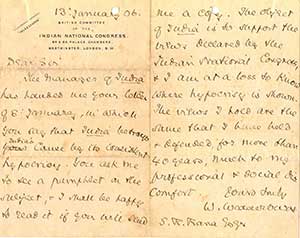 13 January 06.
BRITISH COMMITTEE
OF THE
INDIAN NATIONAL CONGRESS.
84 & 85, PALACE CHAMBERS,
WESTMINSTER, LONDON, S.W.
Dear Sir
The Manager of India
has handed me your letter
of 6 January, in which
you say that India betrays
India's
your Cause by its consistent
hypocrisy. You ask me
to see a pamphlet on the
subject, & I shall be happy
to read it if you will send
me a copy. The object
of India is to support the
views declared by the
Indian National Congress,
& I am at a loss to know
where hypocrisy is shown.
The views I hold are the
same that I have held
& defended, for more than
40 years, much to my
professional & social dis
comfort. Yours truly
W. Wedderburn
S. R. Rana Esqre